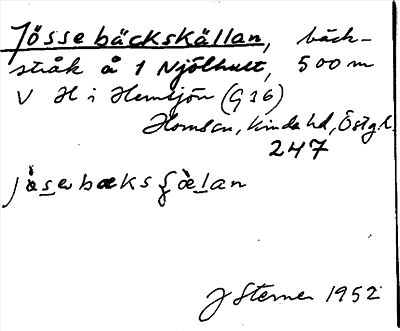 Jössebäckskällan, bäck-
stråk å 1 Njölhult, 500 m
V H i Hemsjön (G 36)
Horn sn, Kinda hd, Östgl.
247
J Sterner 1952